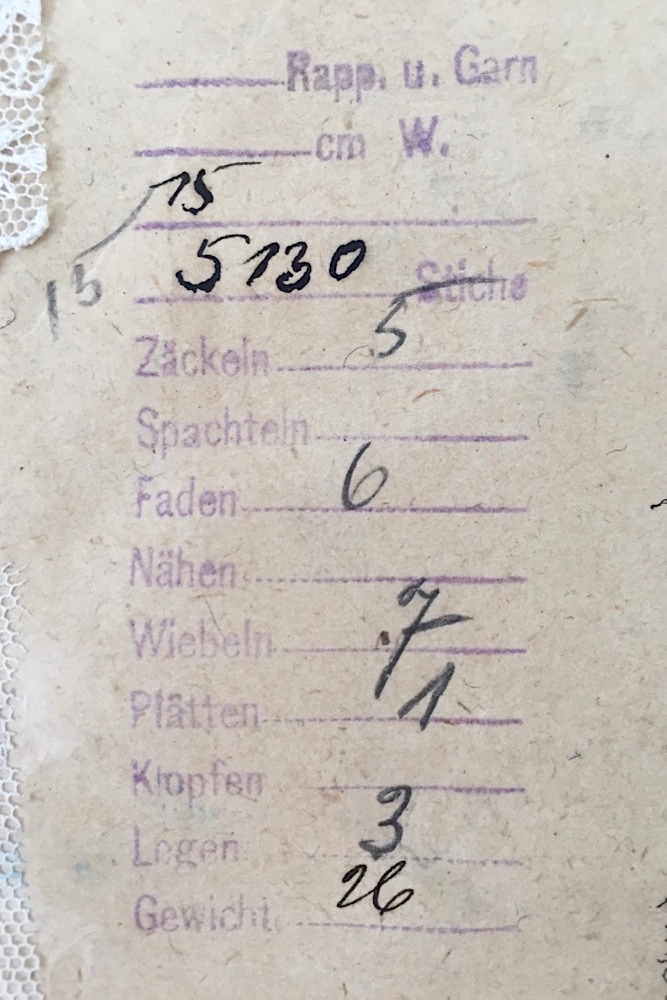 Rapp. u. Garn
cm W.
15
15
5130 Stiche
Zäckeln 5
Spachteln
Faden 6
Nähen
Wiebeln 7
Plätten 1
Klopfen
Legen 3
Gewicht 26